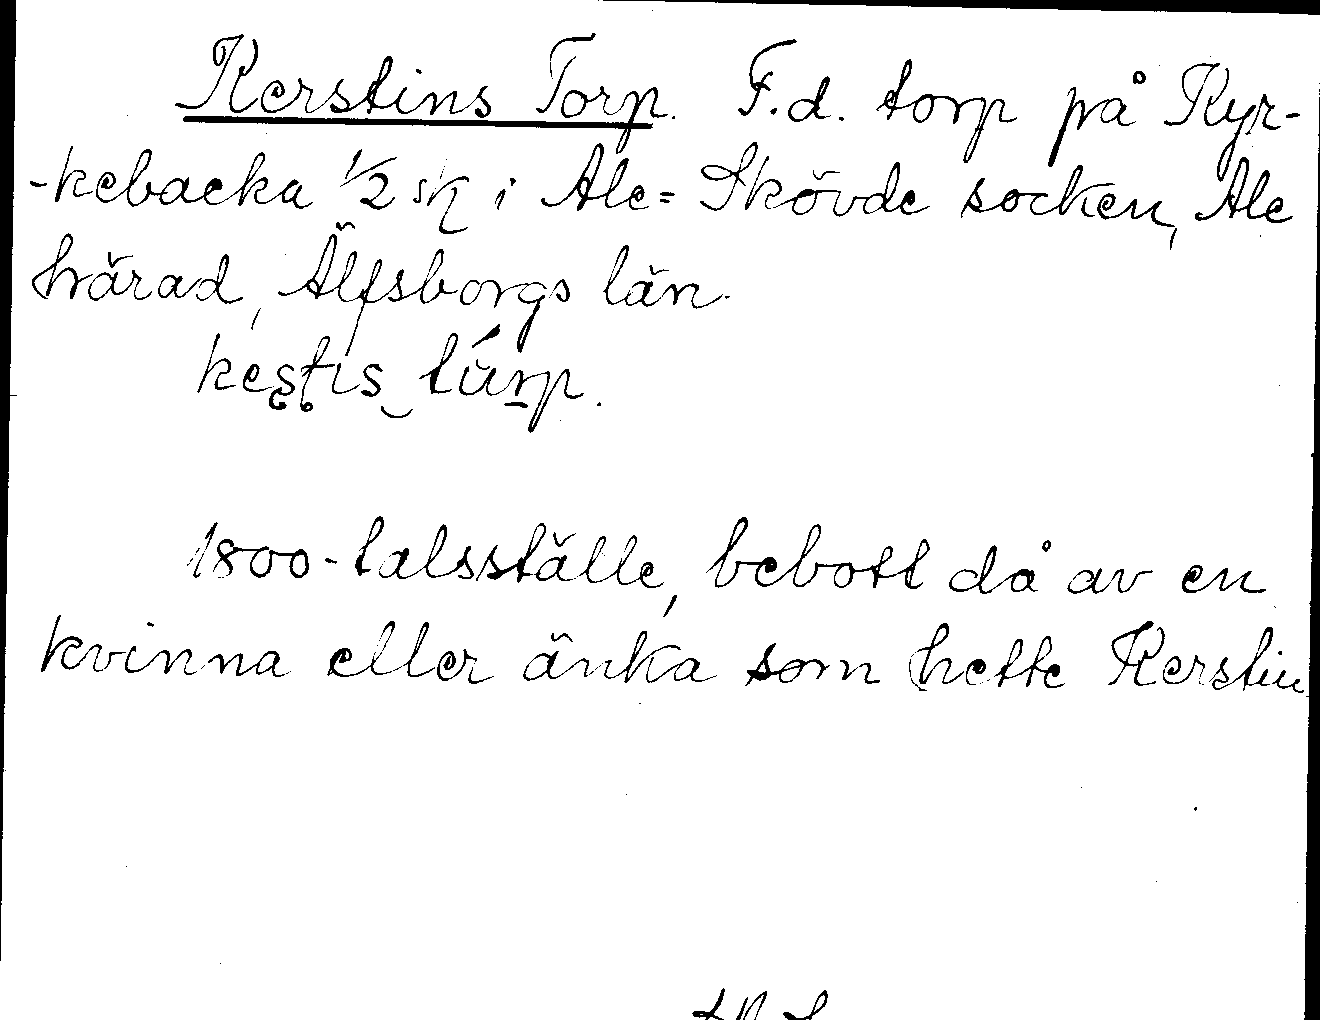 Kerstins Torp. F.d. torp på Kyr-
-kebacka 1/2 sk i Ale=Skövde socken, Ale
härad, Älfsborgs län.
kestis túrp.
1800-talsställe, bebott då av en
kvinna eller änka som hette Kerstin